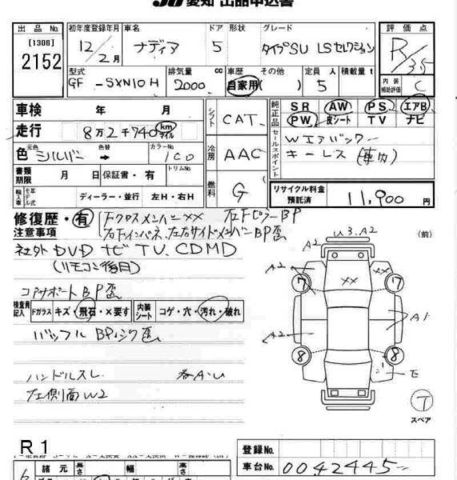 愛知 出品申込書
出品No. 初年度登録年月 車名 ドア 形状 グレード 評価点
[1306] 2152 12/2月 ナディア 5 タイプSU LSセレクション R/35
型式 排気量 車歴 その他( ) 定員 積載量t 内装補助評価 C
GF-SXN10H 2000 自家用 5人
車検 年 月 シフト CAT 純正品 SR AW PS エアB
走行 8万2千740km PW 革シート TV ナビ
色 シルバー 色替 カラーNo. 1C0 冷房 AAC セールスポイント Wエアバック
キーレス
書類期限 月 日 保証書・有 トリムNo. 燃料 G
輸入車 ディーラー・並行 左H・右H リサイクル料金預託済 11,900円
修復歴・有 FクロスメンバーXX 左FピラーBP
注意事項
社外DVDナビTV.CDMD (前)
(リモコン後日)
コアサポートBP歪
検査員記入 Fガラス キズ・飛石・X要す 内装シート コゲ・穴・汚れ・破れ
バックパネルBP歪
ハンドルスレ
左側面W2
W3.A2
A2
A2
XX
7 7
A2 A1
8 8
E
T
スペア
R1
諸元 長さ 幅 高さ
登録No.
車台No. 0042445